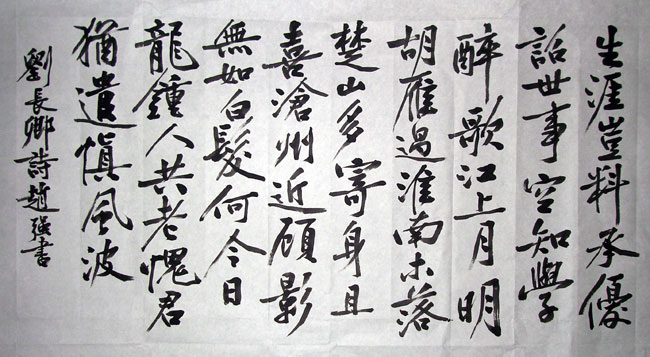 生涯豈料承優
詔世事空知學
醉歌江上月明
胡雁過淮南木落
楚山多寄身且
喜滄州近顧影
無如白髮何今日
龍鍾人共老愧君
猶遣慎風波
劉長卿詩趙强書